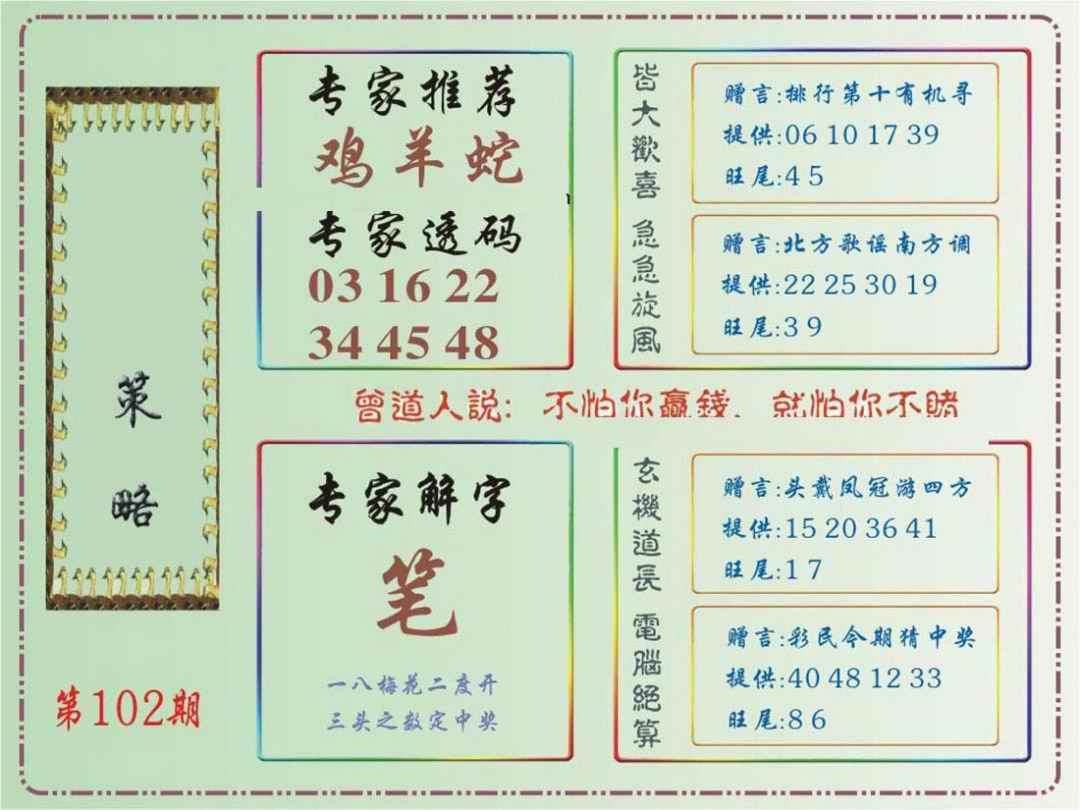 策略
第102期
专家推荐
鸡羊蛇
专家透码
03 16 22
34 45 48
皆大歡喜
赠言:排行第十有机寻
提供:06 10 17 39
旺尾:4 5
急急旋风
赠言:北方歌谣南方调
提供:22 25 30 19
旺尾:3 9
曾道人説: 不怕你贏錢, 就怕你不賭
专家解字
笔
一八梅花二度开
三头之数定中奖
玄機道長
赠言:头戴凤冠游四方
提供:15 20 36 41
旺尾:1 7
電腦絕算
赠言:彩民今期猜中奖
提供:40 48 12 33
旺尾:8 6